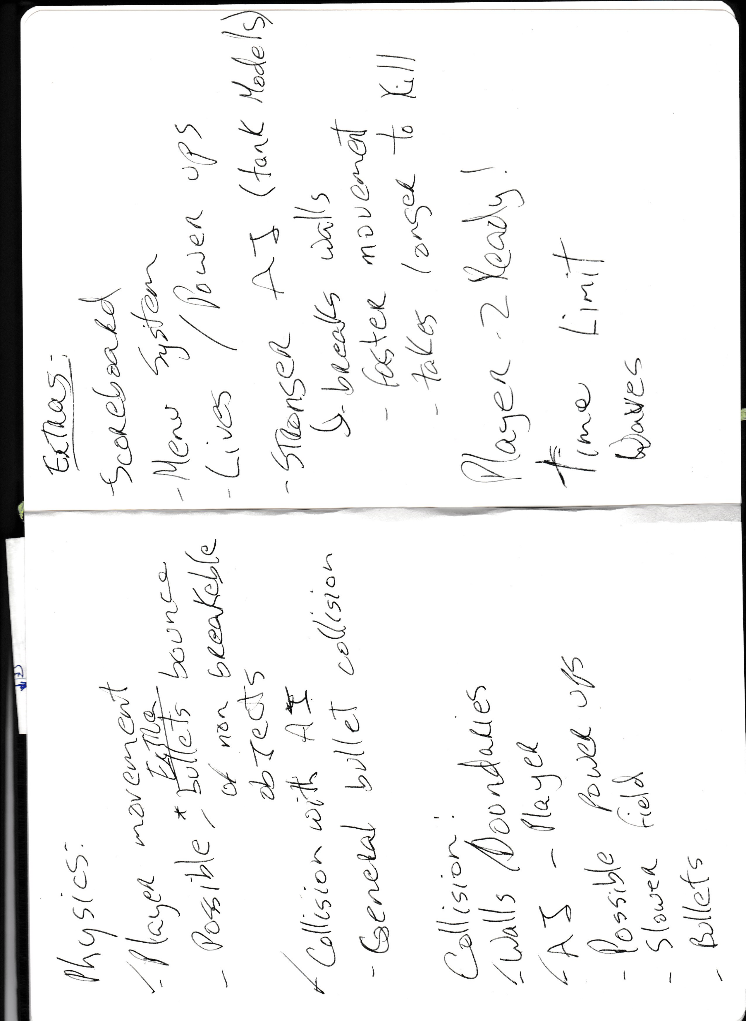 Physics:
✓ Player movement
Extra
- Possible, * bullets bounce
of non breakable
objects
✓ Collision with AI
- General bullet collision
Collision:
✓ Walls Boundaries
✓ AI - Player
- Possible power ups
- Slower field
- Bullets
Extras:
- Scoreboard
- Menu System
- Lives / Power ups
- Stronger AI (tank Models)
↳ - breaks walls
- faster movement
- takes longer to kill
Player - 2 Ready!
Time Limit
Waves